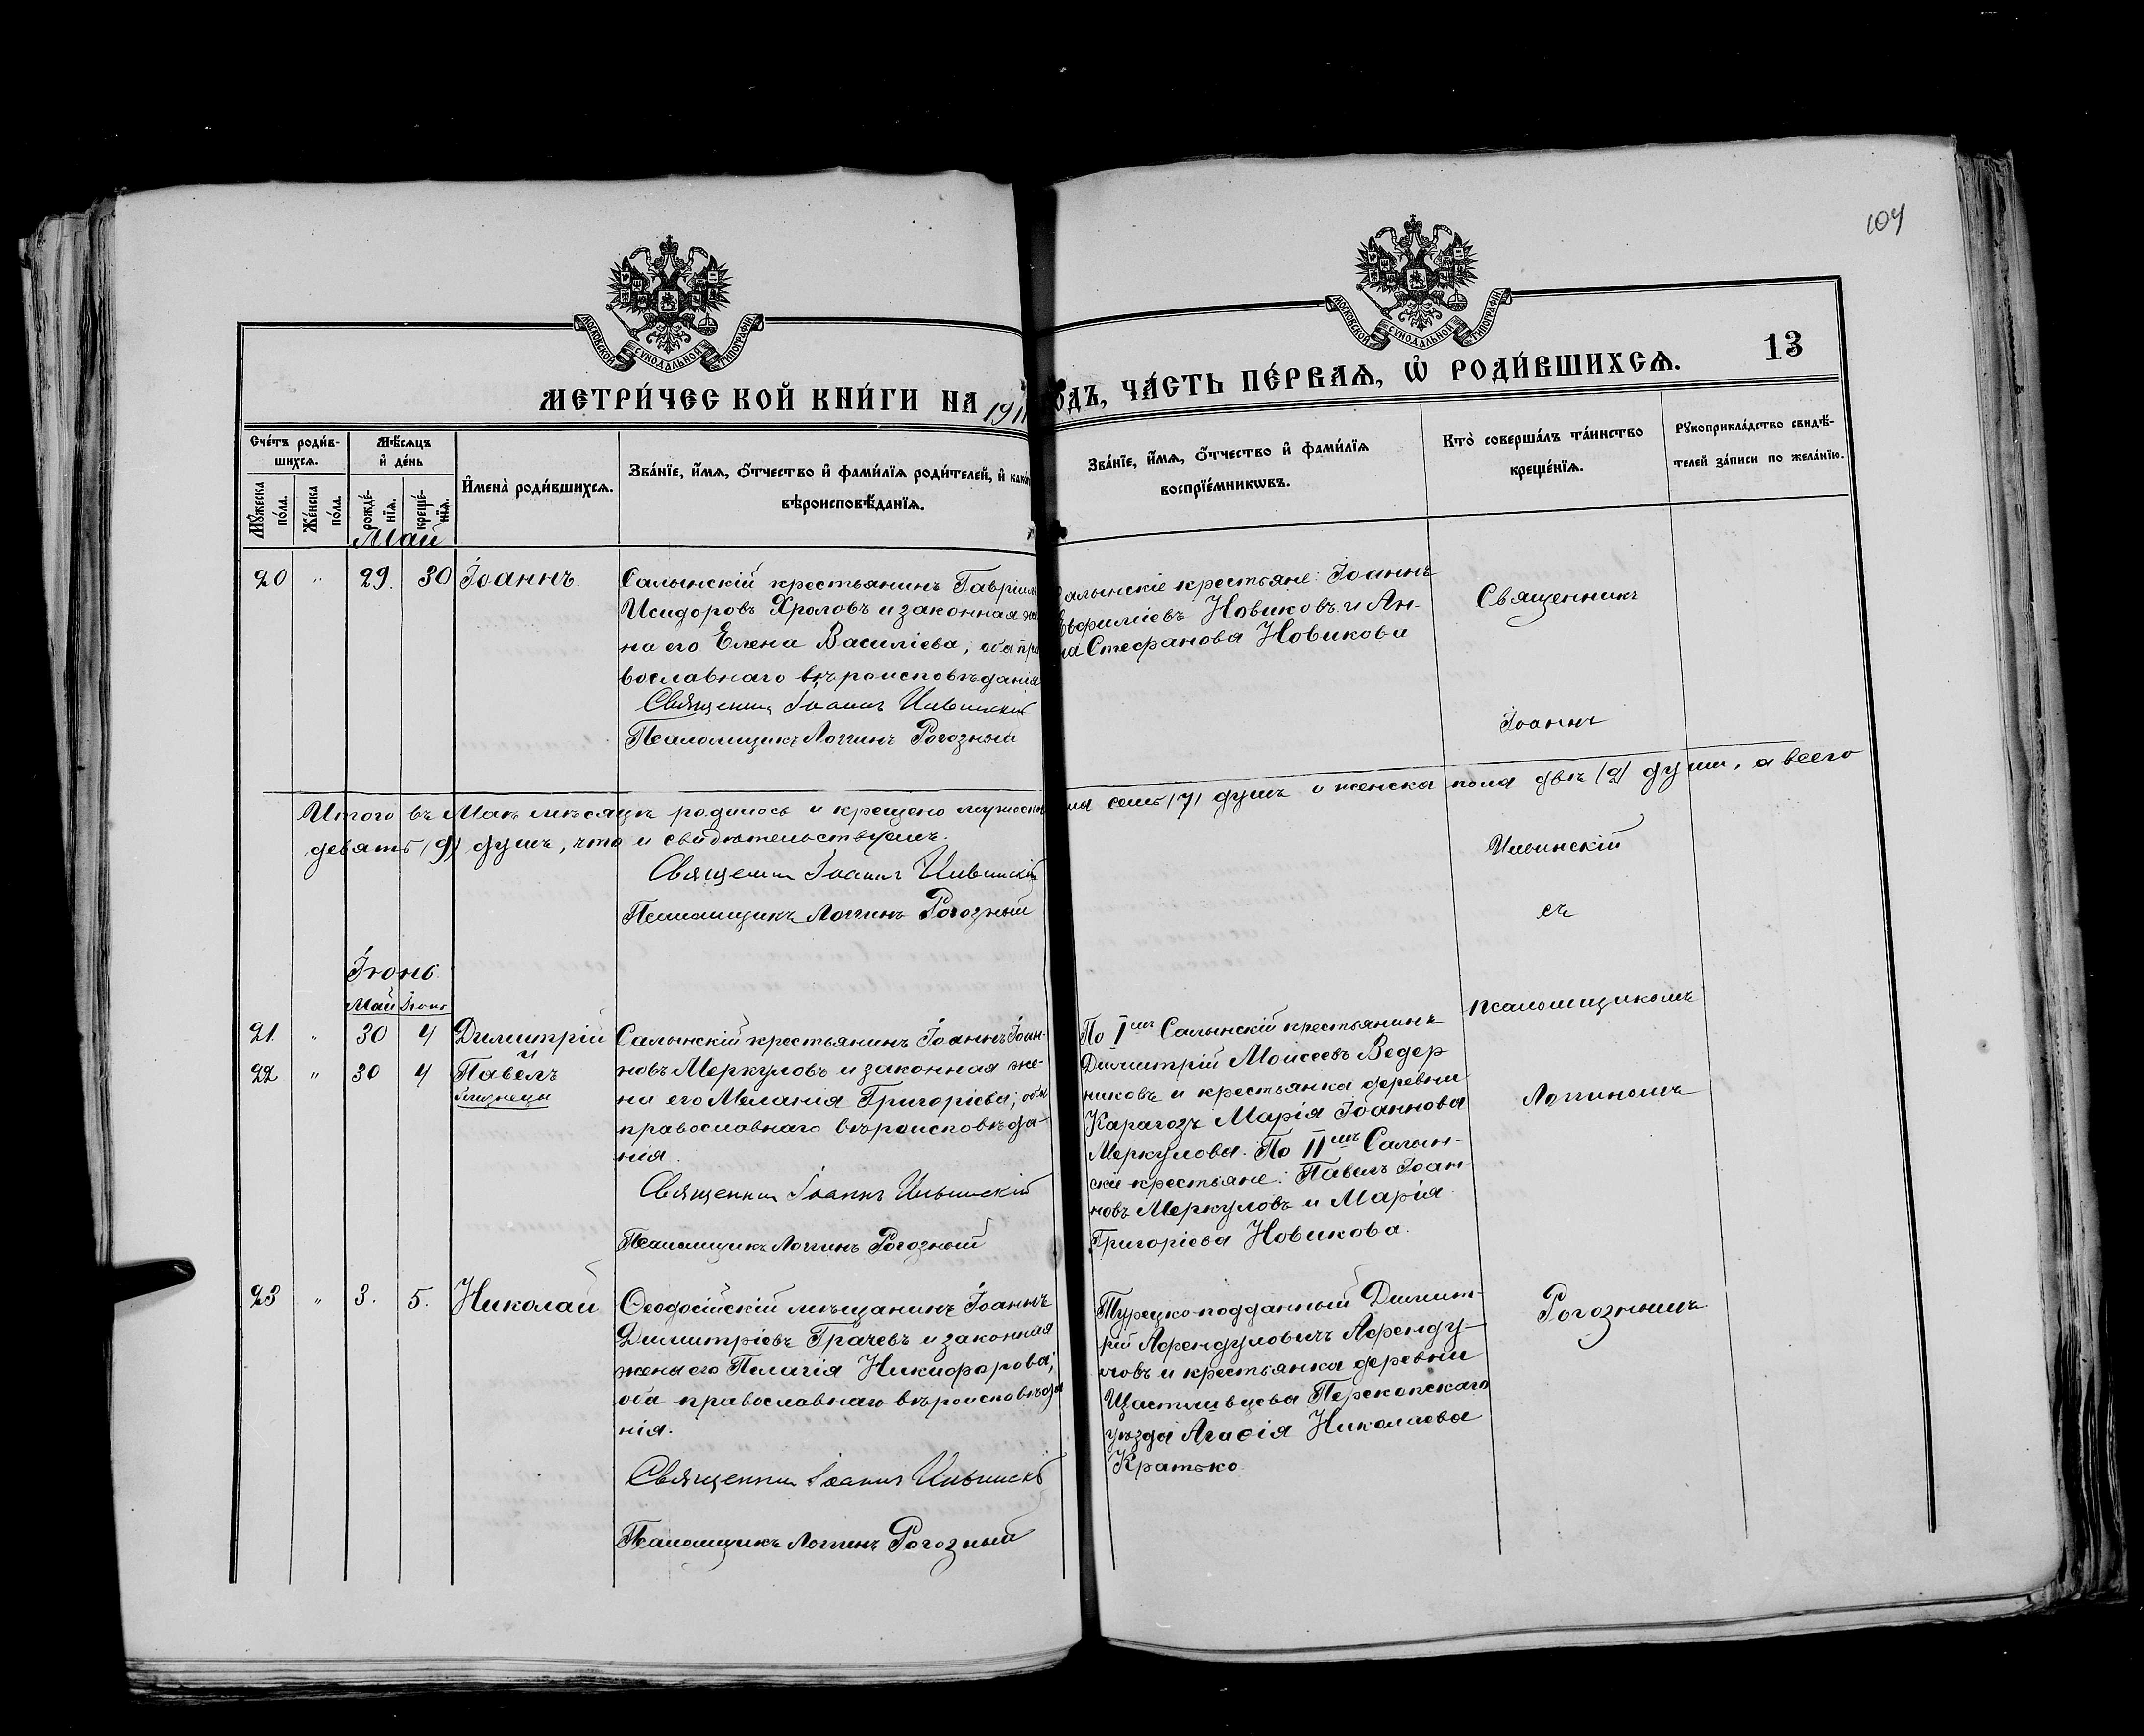 104
МОСКОВСКОЙ СѴНОДАЛЬНОЙ ТИПОГРАФІИ
МОСКОВСКОЙ СѴНОДАЛЬНОЙ ТИПОГРАФІИ
13
МЕТРИ́ЧЕСКОЙ КНИ́ГИ НА 191
ОДЪ, ЧА́СТЬ ПЕ́РВАѦ, Ѡ҆ РОДИ́ВШИХСѦ.
Сче́тъ роди́в-
шихсѧ.
Мѣ́сѧцъ
и҆ де́нь
Мꙋ́жеска по́ла.
Же́нска по́ла.
рожде́-
нїѧ.
креще́-
нїѧ.
И҆мена̀ роди́вшихсѧ.
Зва́нїе, и҆́мѧ, ѻ҆́тчество и҆ фами́лїѧ роди́телей, и҆ како́
вѣроисповѣ́данїѧ.
Зва́нїе, и҆́мѧ, ѻ҆́тчество и҆ фами́лїѧ
воспрїе́мникѡвъ.
Кто̀ соверша́лъ та́инство
креще́нїѧ.
Рꙋкоприкла́дство свидѣ́-
телей за́писи по жела́нїю.
Май
20 " 29. 30 Іоаннъ.
Салынскій крестьянинъ Гавріилъ
Исидоровъ Хроловъ и законная же
на его Елена Василіева; оба пра
вославнаго вѣроисповѣданія
Священник Іоаннъ Ильинскій
Псаломщикъ Логгинъ Рогозный
алынскіе крестьяне: Іоаннъ
Евфиміевъ Новиковъ и Ан-
на Стефанова Новикова
Священникъ
Іоаннъ
Итого въ Маѣ мѣсяцѣ родилось и крещено мужеска
ла семь (7) душъ и женска пола двѣ (2) души, а всего
девять (9) душъ, что и свидѣтельствуемъ.
Священник Іоаннъ Ильинскій
Псаломщикъ Логгинъ Рогозный
Ильинскій
съ
Іюнь.
Май Іюнь
21. " 30 4 Димитрій
и
22 " 30 4 Павелъ
близнецы
Салынскій крестьянинъ Іоаннъ Іоан-
новъ Меркуловъ и законная же-
на его Меланія Григоріева; оба
православнаго вѣроисповѣда-
нія.
Священник Іоаннъ Ильинскій
Псаломщикъ Логгинъ Рогозный
По Iмъ Салынскій крестьянинъ
Димитрій Моисеевъ Ведер
никовъ и крестьянка деревни
Карагозъ Марія Іоаннова
Меркулова. По IIмъ Салын-
скіе крестьяне: Павелъ Іоан-
новъ Меркуловъ и Марія
Григоріева Новикова.
псаломщикомъ
Логгиномъ
23 " 3. 5. Николай
Ѳеодосійскій мѣщанинъ Іоаннъ
Димитріевъ Грачевъ и законная
жена его Пелагія Никифорова;
оба православнаго вѣроисповѣда
нія.
Священник Іоаннъ Ильинскій
Псаломщикъ Логгинъ Рогозный
Турецко-подданный Димит-
рій Афендуловичъ Афенду-
ловъ и крестьянка деревни
Щастливцева Перекопскаго
уѣзда Агаѳія Николаева
Кратько.
Рогознымъ.